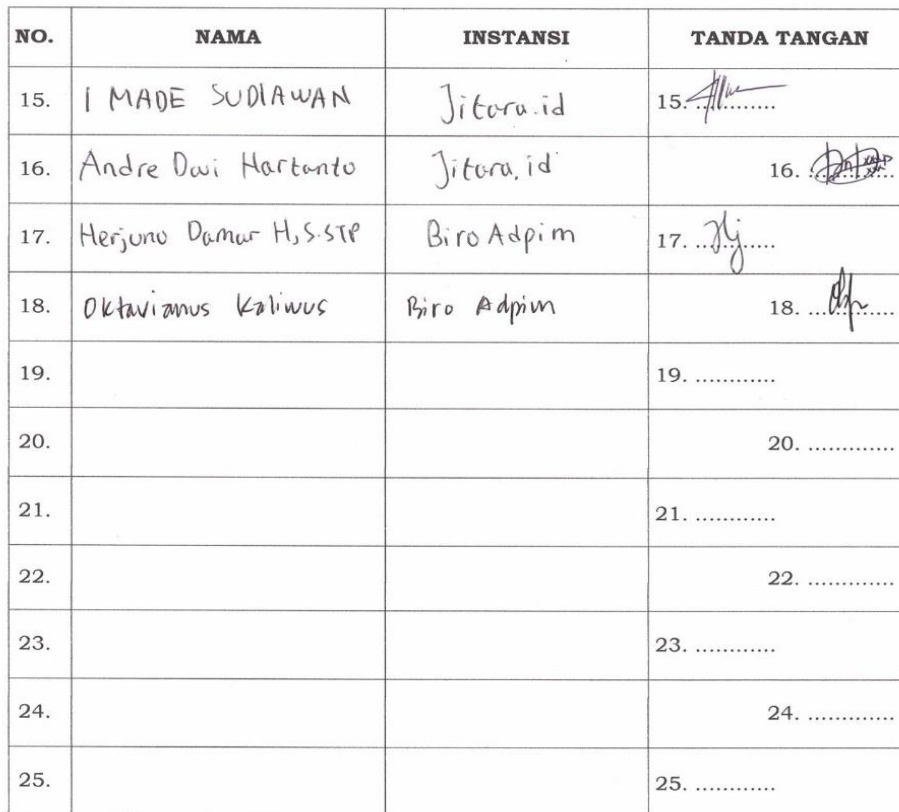 NO. NAMA INSTANSI TANDA TANGAN
15. I MADE SUDIAWAN Jitara.id 15. ............
16. Andre Dwi Hartanto Jitara.id 16. ............
17. Herjuno Damar H, S.STP Biro Adpim 17. ............
18. Oktavianus Kaliwus Biro Adpim 18. ............
19. 19. ............
20. 20. ............
21. 21. ............
22. 22. ............
23. 23. ............
24. 24. ............
25. 25. ............